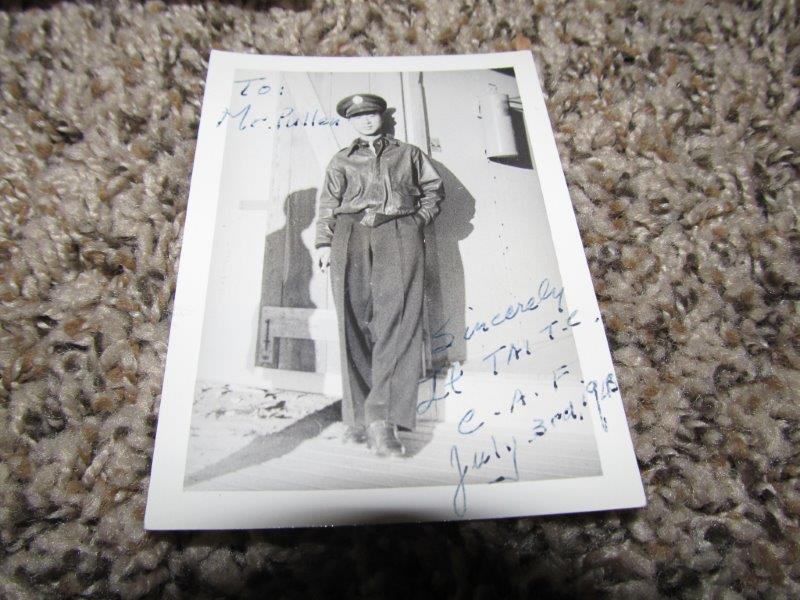 To:
Mr. Pullen
Sincerely
Lt TAI T.C.
C. A. F
July 3rd,